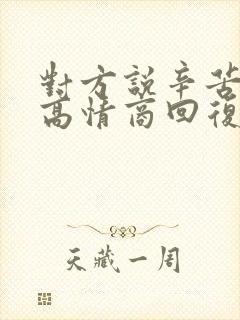 對方說辛苦
高情商回復
天藏一周